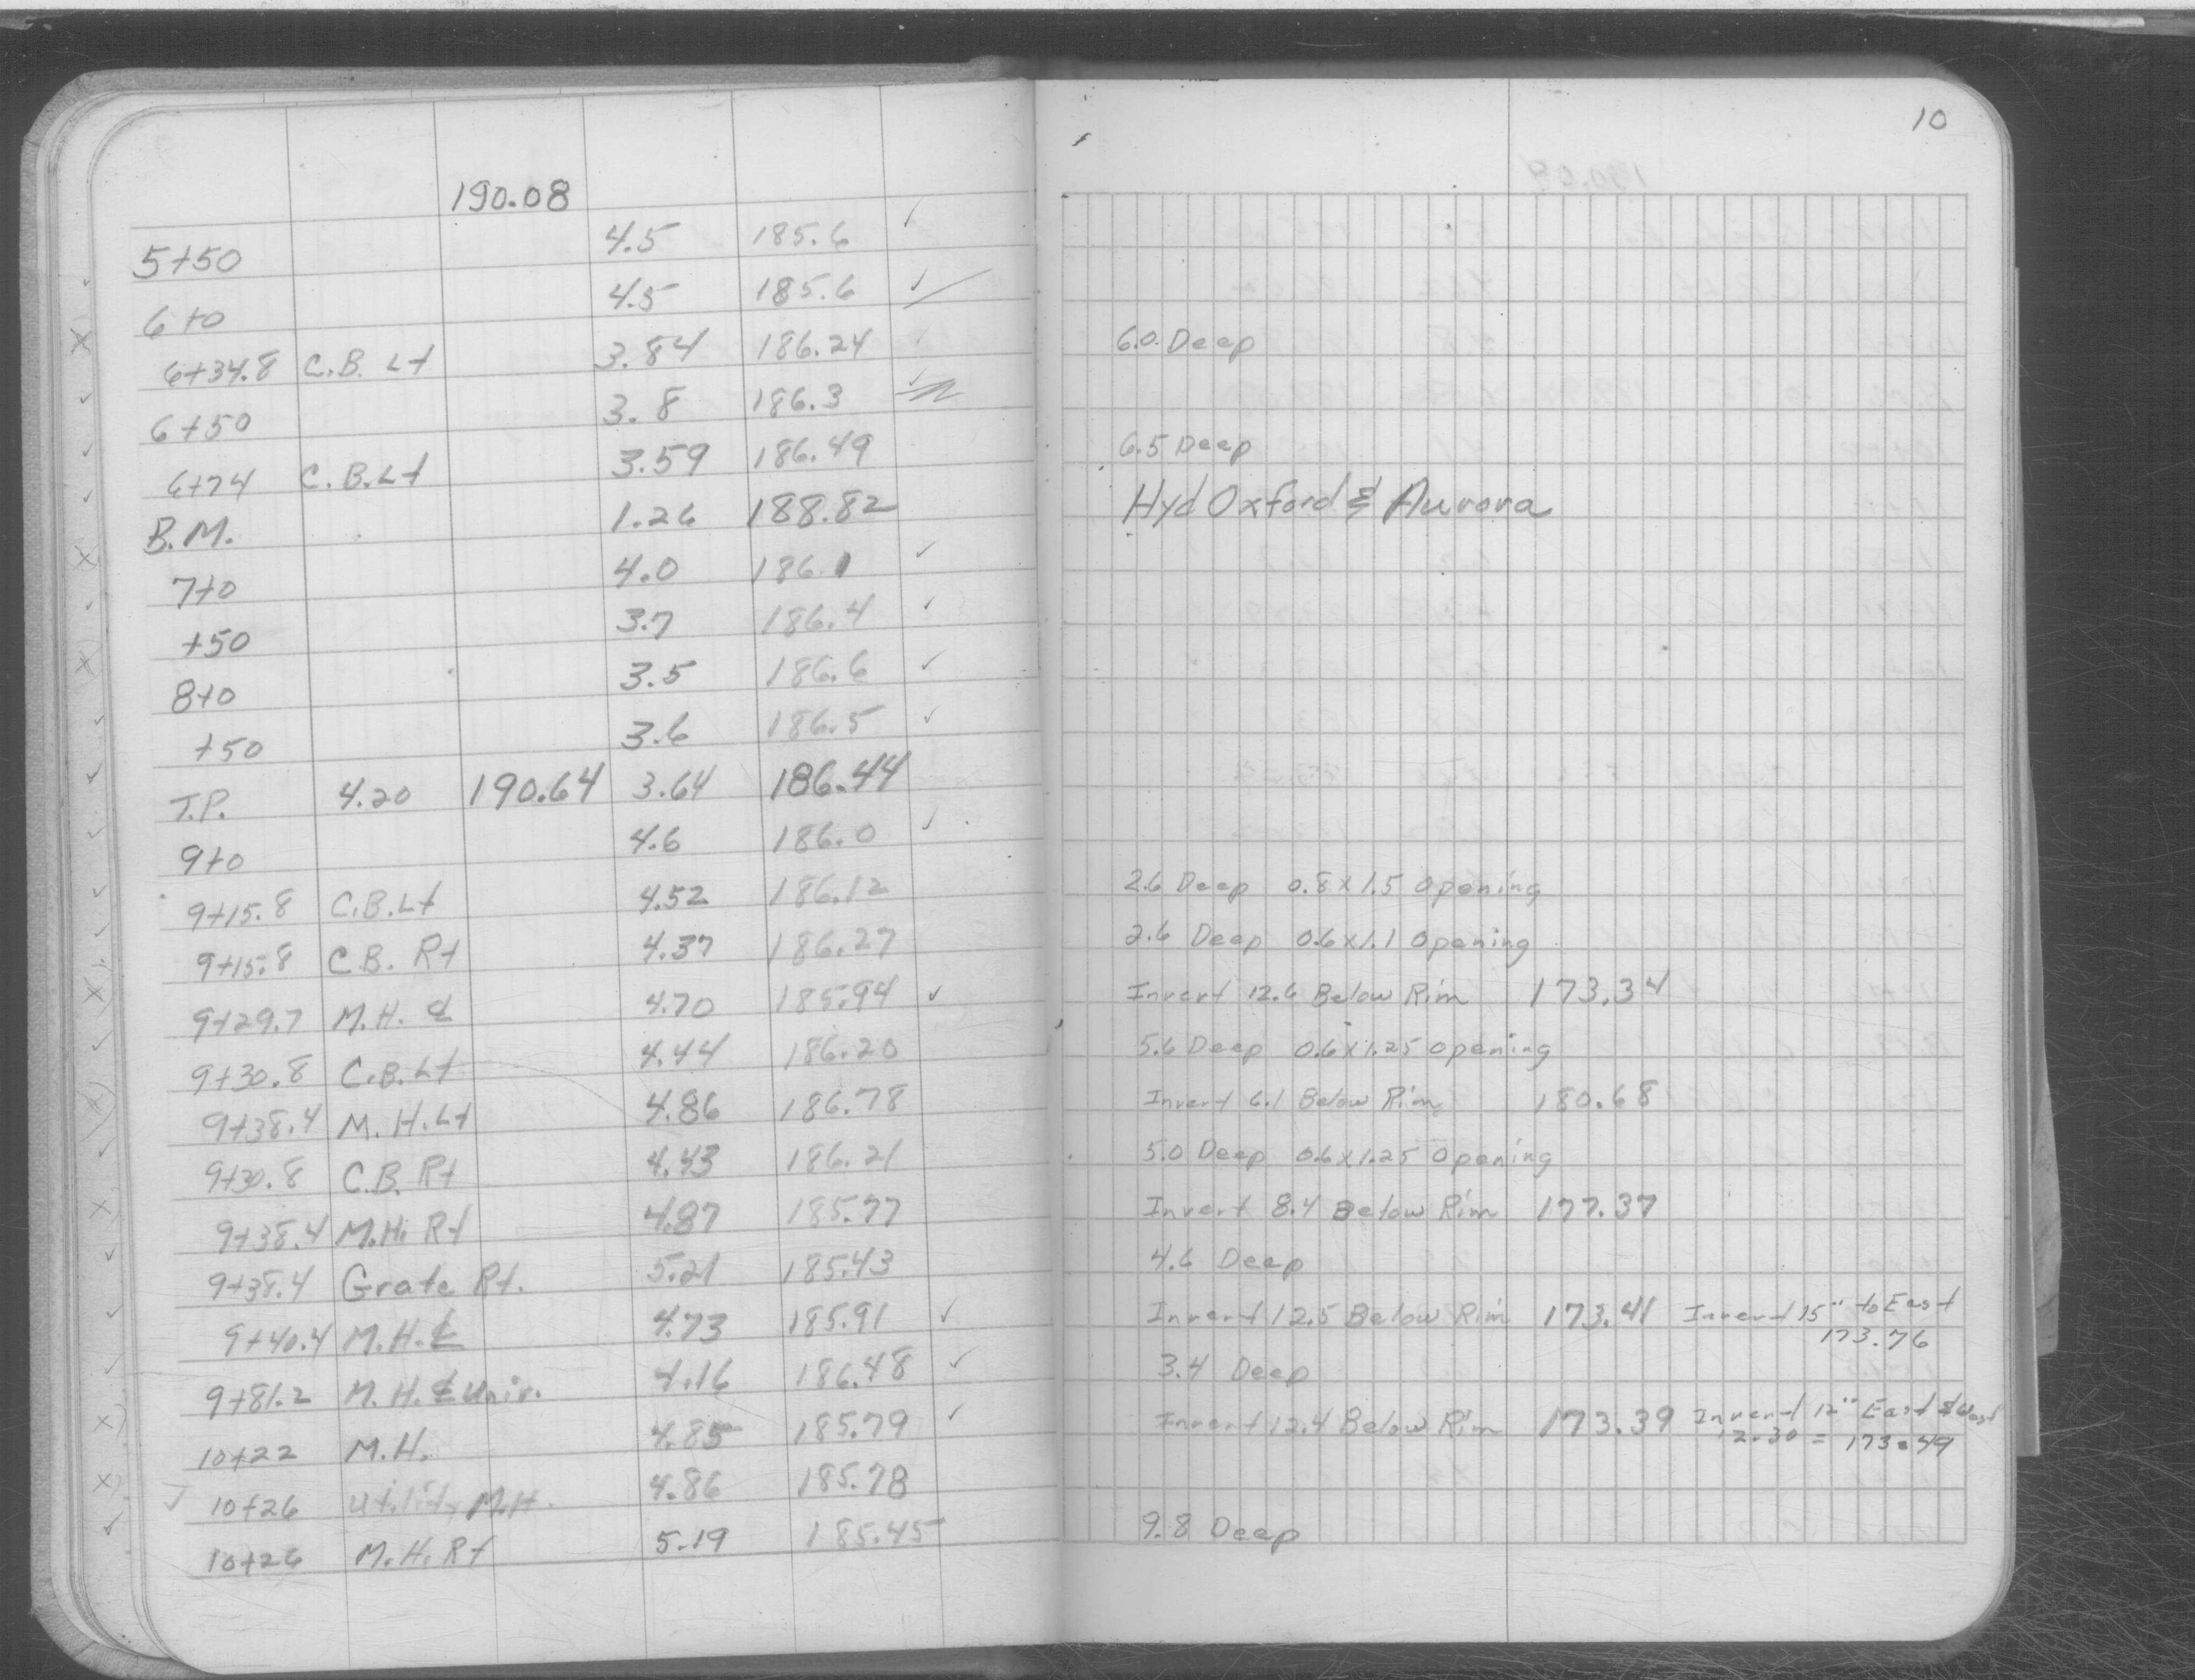 10
190.08
5+50 4.5 185.6 ✓
6+0 4.5 185.6 ✓
6+34.8 C.B. Lt 3.84 186.24 ✓ 6.0. Deep
6+50 3.8 186.3 ✓
6+74 C.B. Lt 3.59 186.49 6.5 Deep
B.M. 1.26 188.82 Hyd Oxford & Aurora
7+0 4.0 186.1 ✓
+50 3.7 186.4 ✓
8+0 3.5 186.6 ✓
+50 3.6 186.5 ✓
T.P. 4.20 190.64 3.64 186.44
9+0 4.6 186.0 ✓
9+15.8 C.B. Lt 4.52 186.12 2.6 Deep 0.8 x 1.5 Opening
9+15.8 C.B. Rt 4.37 186.27 2.6 Deep 0.6 x 1.1 Opening
9+29.7 M.H. ℄ 4.70 185.94 ✓ Invert 12.6 Below Rim 173.34
9+30.8 C.B. Lt 4.44 186.20 5.6 Deep 0.6 x 1.25 Opening
9+38.4 M.H. Lt 4.86 186.78 Invert 6.1 Below Rim 180.68
9+30.8 C.B. Rt 4.43 186.21 5.0 Deep 0.6 x 1.25 Opening
9+38.4 M.H. Rt 4.87 185.77 Invert 8.4 Below Rim 177.37
9+38.4 Grate Rt. 5.21 185.43 4.6 Deep
9+40.4 M.H. ℄ 4.73 185.91 ✓ Invert 12.5 Below Rim 173.41 Invert 15" to East
173.76
9+81.2 M.H. ℄ Univ. 4.16 186.48 ✓ 3.4 Deep
10+22 M.H. 4.85 185.79 ✓ Invert 12.4 Below Rim 173.39 Invert 12" East & West
12.30 = 173.49
10+26 Utility M.H. 4.86 185.78
10+26 M.H. Rt 5.19 185.45 9.8 Deep